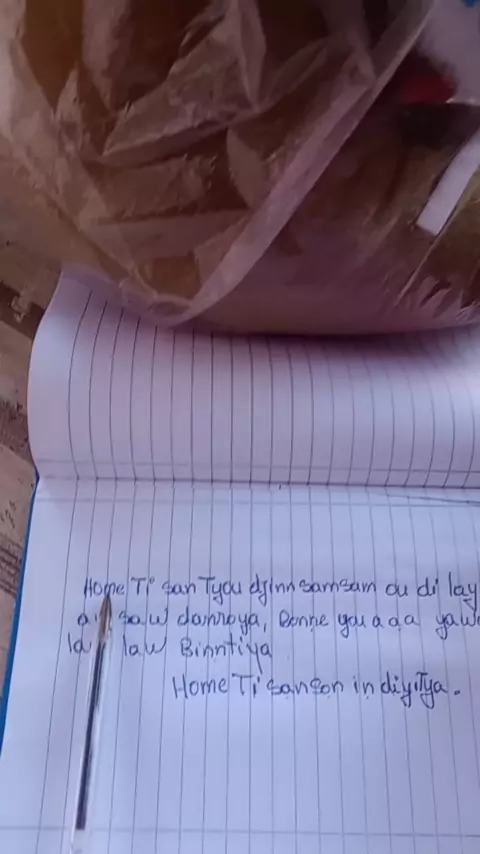 Home Ti san Tyou djinn samsam ou di lay
saw damroya, Bonne you a a a yaw
law Binntiya
Home Ti sanson in diyiTya.